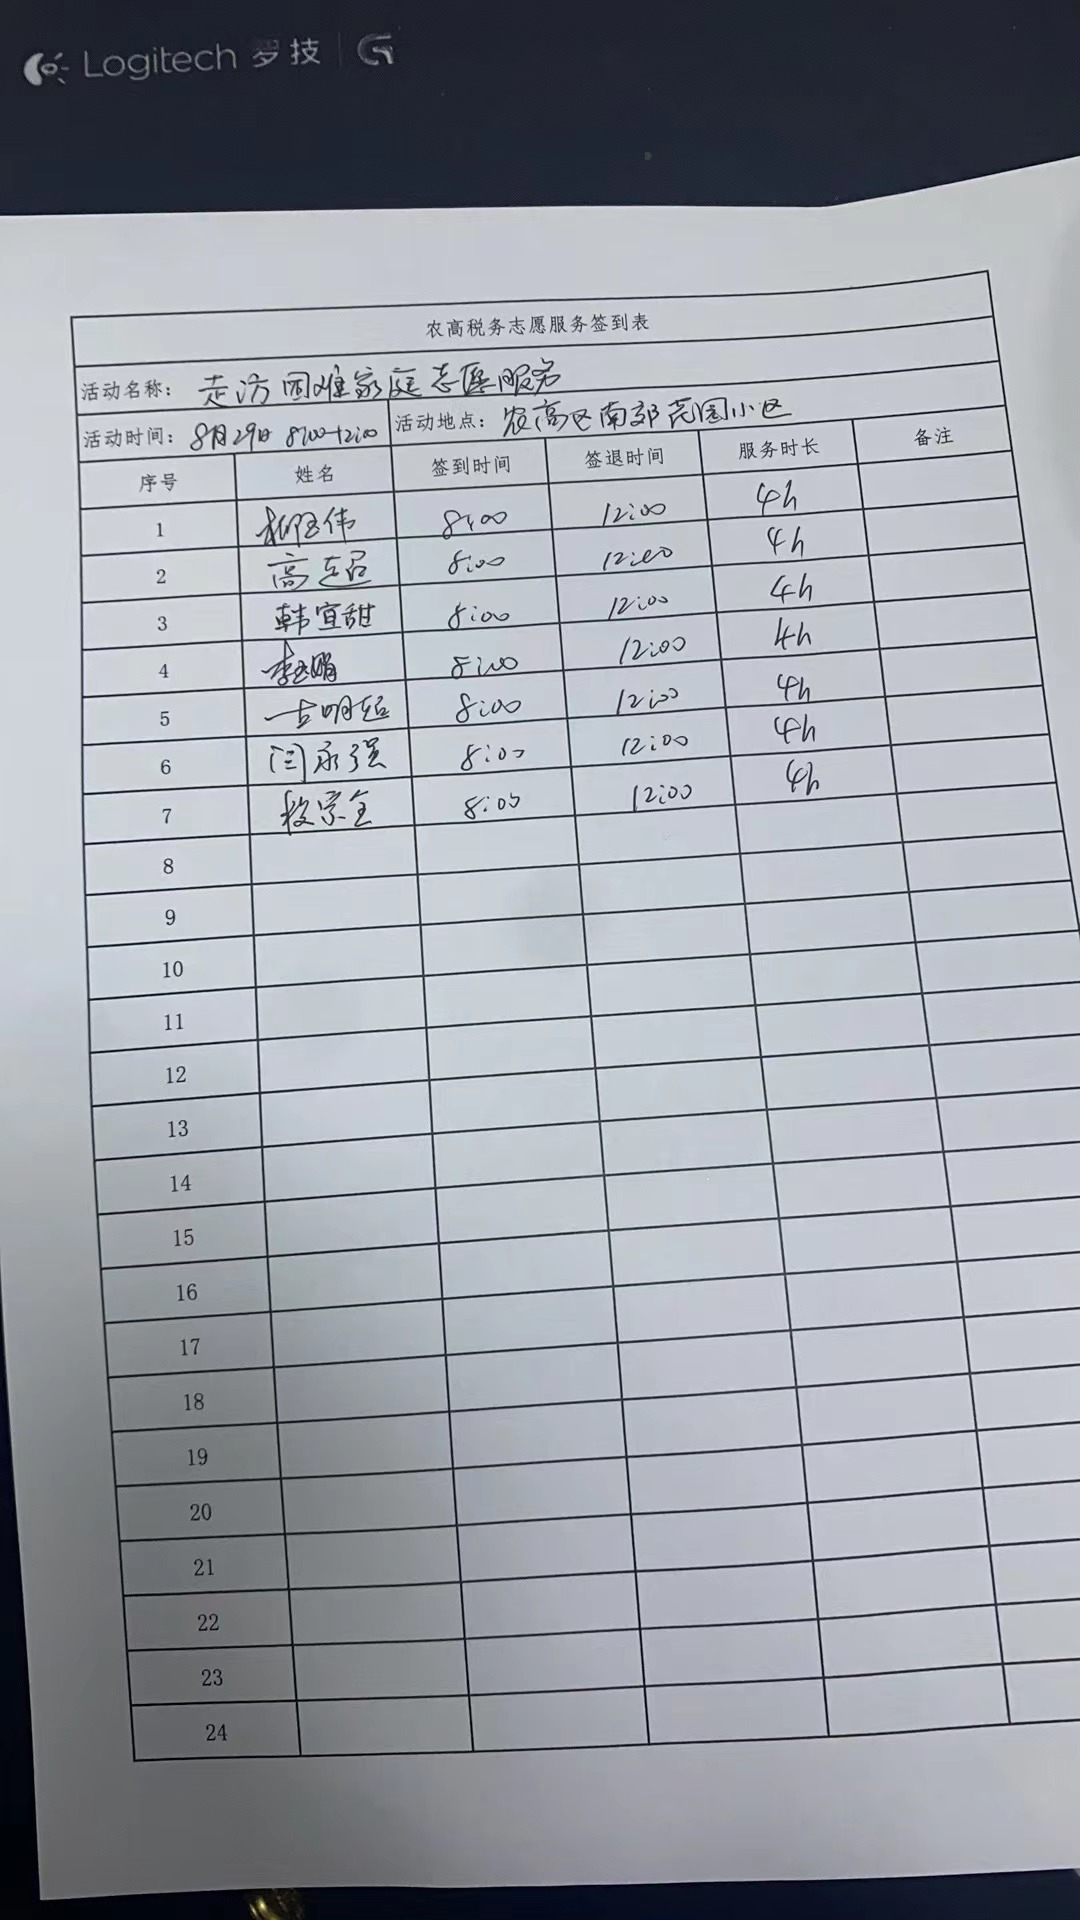 Logitech 罗技
农高税务志愿服务签到表
活动名称： 走访困难家庭志愿服务
活动时间：8月29日 8:00-12:00 活动地点：农高区南郊花园小区
序号 姓名 签到时间 签退时间 服务时长 备注
1 伟 8:00 12:00 4h
2 高 超 8:00 12:00 4h
3 韩宜甜 8:00 12:00 4h
4 李 鹏 8:00 12:00 4h
5 明 8:00 12:00 4h
6 闫永强 8:00 12:00 4h
7 宗全 8:00 12:00 4h
8
9
10
11
12
13
14
15
16
17
18
19
20
21
22
23
24